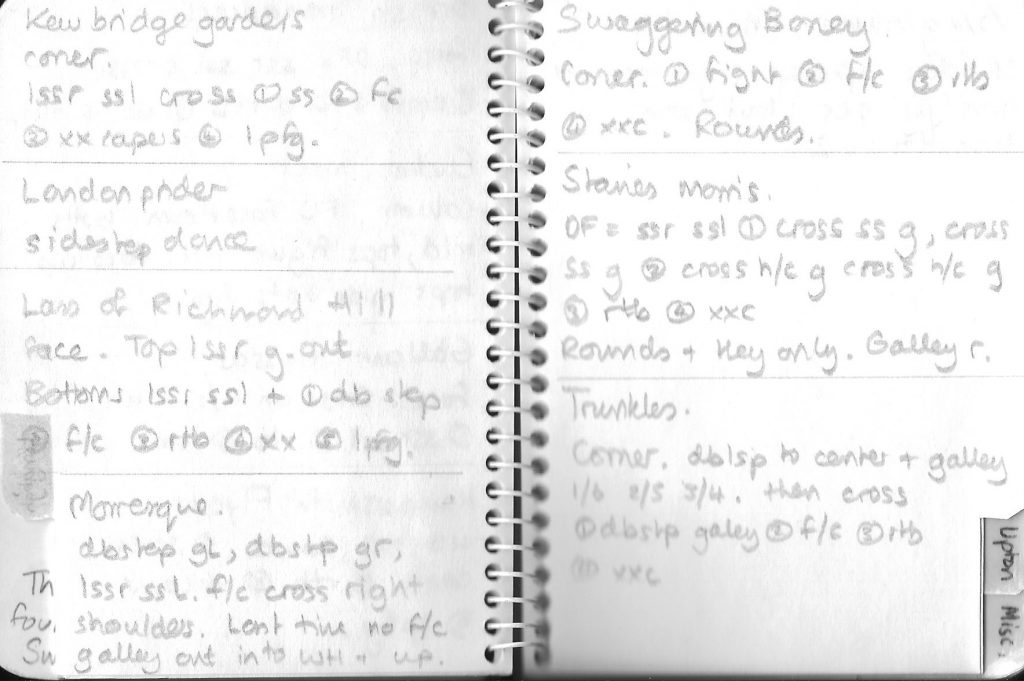 Kew bridge garders
corner.
1ssr ssl cross ① ss ② fc
③ xx capers ④ 1pfg.
London prider
sidestep dance
Lass of Richmond Hill
face. Top 1ssr g. out
Bottoms 1ssr ssl + ① db step
② f/c ③ rtb ④ xx ⑤ 1pfg.
Morresque.
dbstep gL, dbstp gr,
Th 1ssr ssL. f/c cross right
fou. shoulder. Last time no f/c
Su galley out into WH + up.
Swaggering Boney
Corner. ① fight ② f/c ③ rtb
④ xxc. Rounds.
Staines morris.
OF = ssr ssl ① cross ss g, cross
ss g ② cross h/c g cross h/c g
③ rtb ④ xxc
Rounds + Hey only. Galley r.
Trunkles.
Corner. dblsp to center + galley
1/6 2/5 3/4. then cross
① dbstp galey ② f/c ③ rtb
xxc
Upton
Misc.